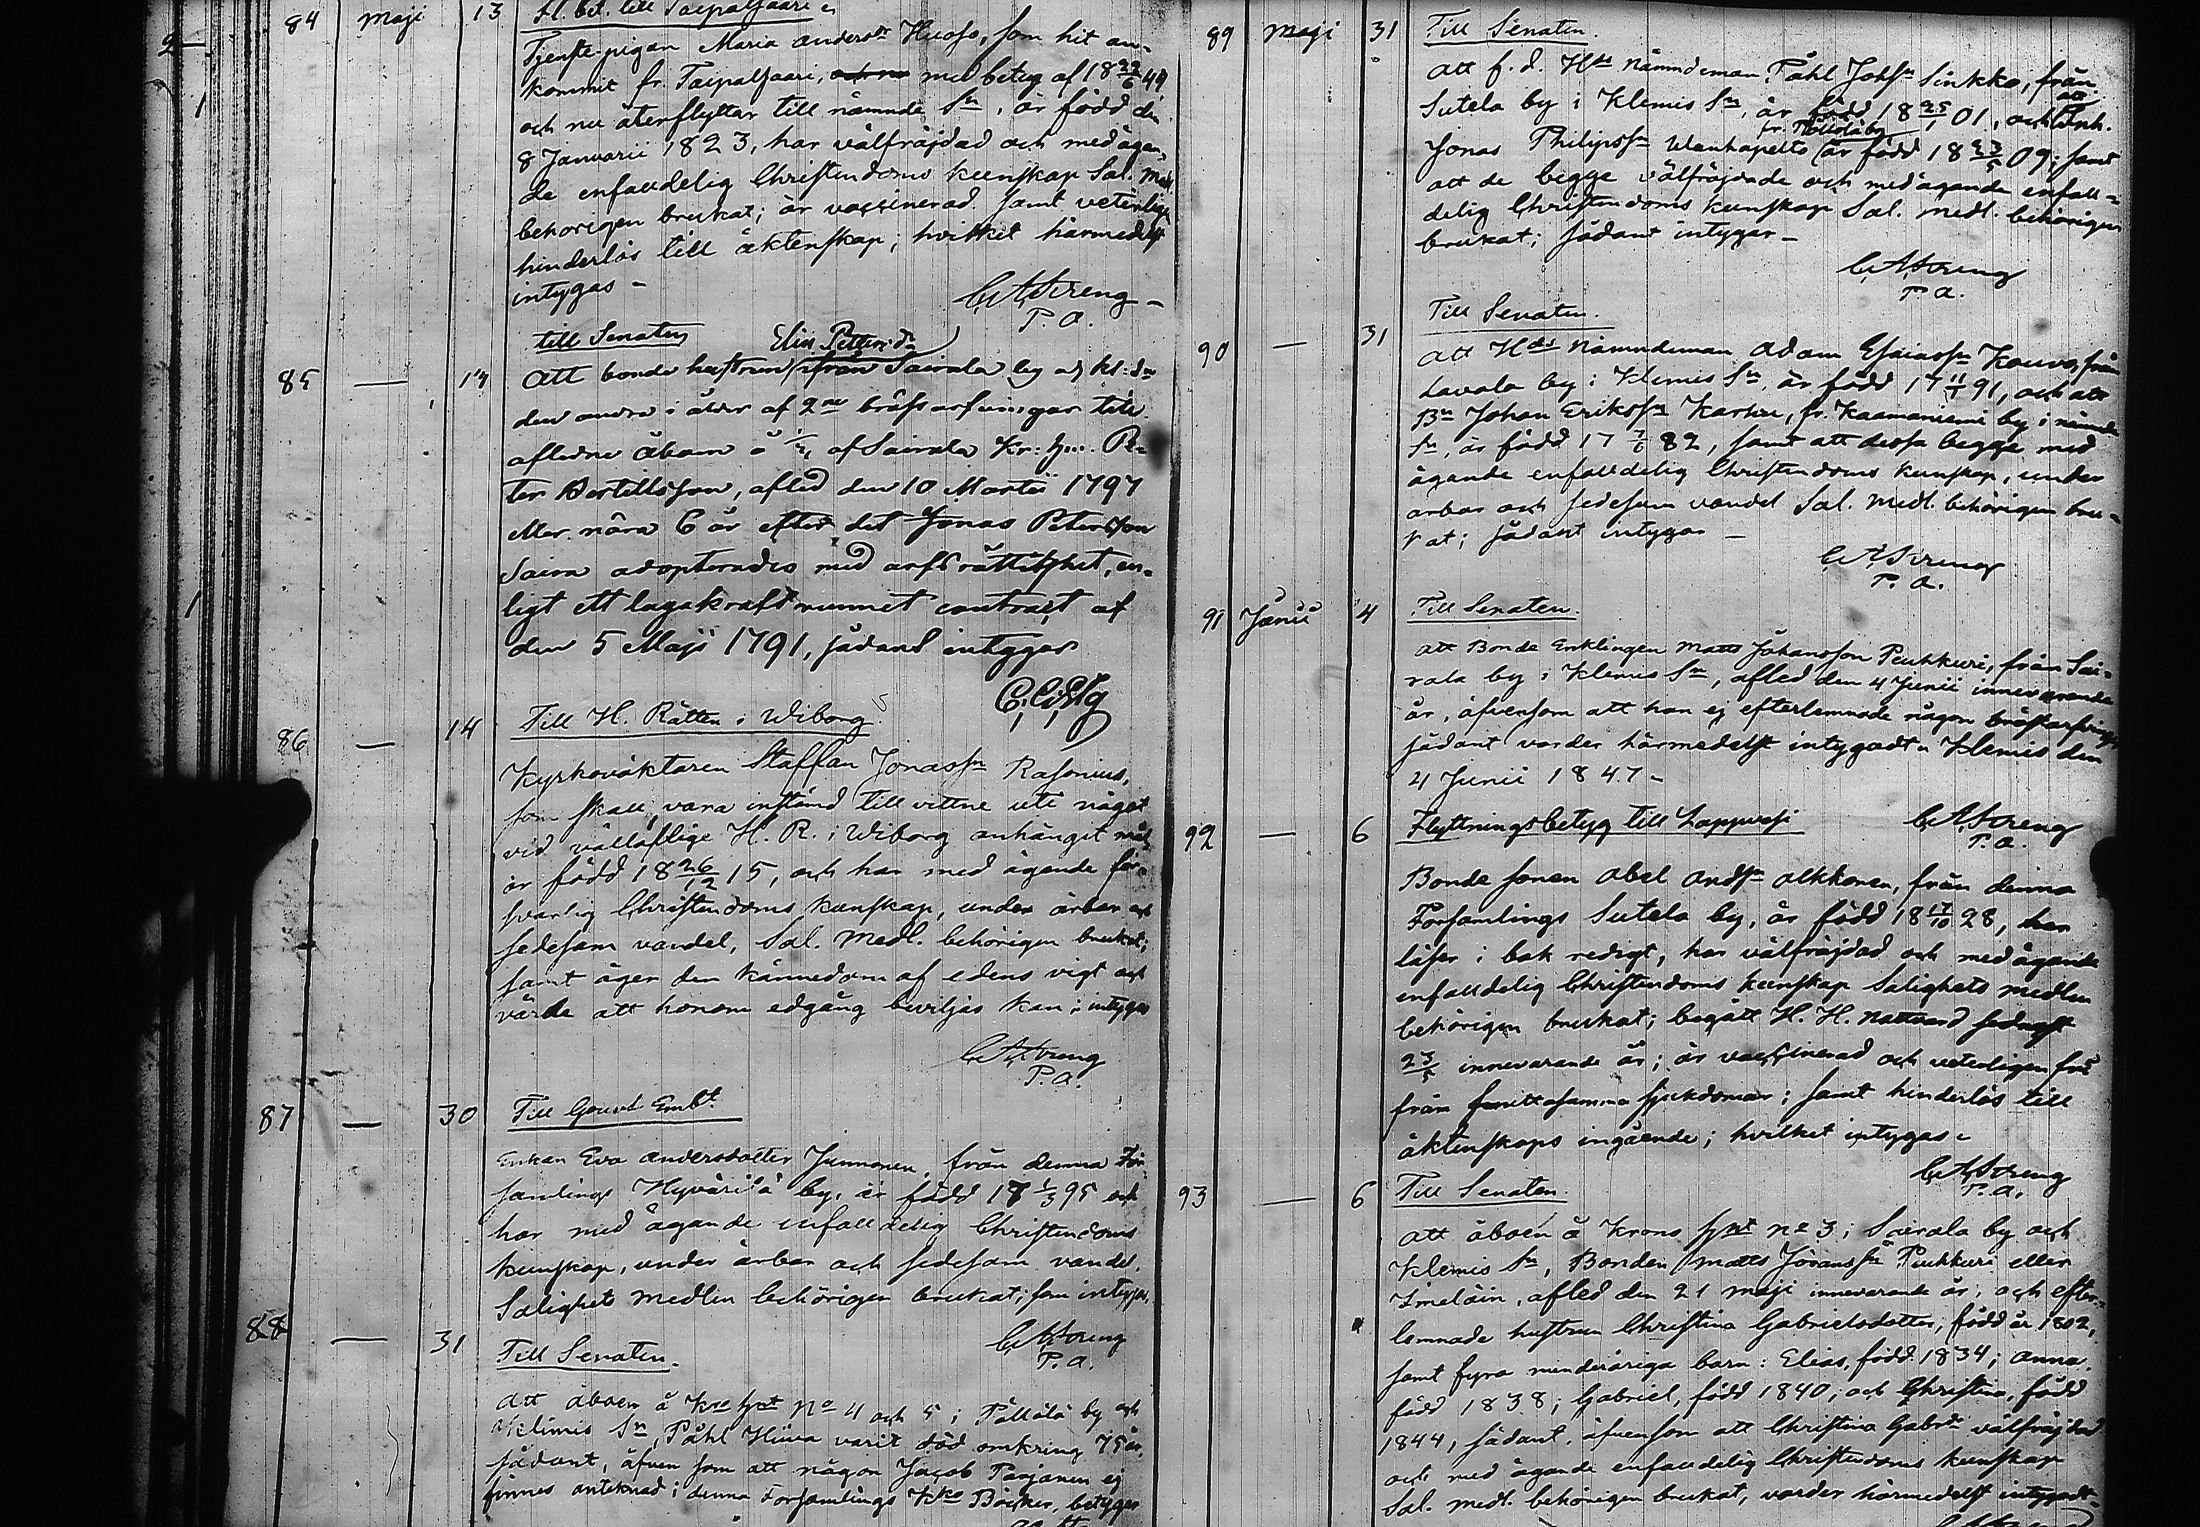 84 Maji 13 Fl. bet. till Taipalsaari
Tjenste pigan Maria Andersdr Huoso, som hit an-
kommit fr. Taipalsaari, med betyg af 18 22/6 44
och nu återflyttar till nämnde Sn, är född den
8 Januarii 1823, har välfräjdad och med ägan-
de enfaldelig Christendoms kunskap Sal. Medl.
behörigen brukat; är vaccinerad samt veterligen
hinderlös till äktenskap; hvilket härmedelst
intygas –
C. A. Streng –
P. a.
till Senaten
Elin Pettersdr
85 — 14 Att bonde hustrun från Sairala by
den andra i ålder af 2ne bröst arfvingar till
aflidne åboen å af Sairala Kr: hm. Pe-
ter Bertillsson, afled den 10 Martii 1797
eller nära 6 år efter det Jonas Petersson
Saira adopterades med arfsrättighet, en-
ligt ett lagakraftvunnet contract af
den 5 Maji 1791, sådant intygar
86 — 14 Till H. Rätten i Wiborg
Kyrkovaktaren Staffan Jonassn Rasonius,
som skall vara instämd till vittne uti något
vid vällöflige H. R. i Wiborg anhängit mål,
är född 18 26/12 15, och har med ägande för-
svarlig Christendoms kunskap, under ärbar och
sedesam vandel, Sal. Medl. behörigen brukat;
samt äger den kännedom af edens vigt och
värde att honom edgång beviljas kan; intygas
C. A. Streng
P. a.
87 — 30 Till Gouvts Embt.
Enkan Eva Andersdotter Junnonen, från denna För-
samlings Hyvärilä by, är född 17 1/3 95 och
har med ägande enfaldelig Christendoms
kunskap, under ärbar och sedesam vandel,
Salighets medlen behörigen brukat; som intygas,
C. A. Streng
P. a.
88 — 31 Till Senaten.
Att åboen å Kro hmt No 4 och 5 i Pällölä by och
Klemis Sn, Påhl Hiiva varit död omkring 75 år,
sådant, äfven som att någon Jacob Parjanen ej
finnes antecknad i denna Församlings Kko Böcker, betygar
89 Maji 31 Till Senaten.
Att f. d. Hds Nämndeman Påhl Johssn Sinkko, från
Sutela by i Klemis Sn, är född 18 25/1 01, och att
fr. Pällölä by
Jonas Philipssn Wanhapelto är född 18 23/5 09; samt
att de begge välfräjdade och med ägande enfall-
delig Christendoms kunskap Sal. medl. behörigen
brukat; sådant intygar –
C. A. Streng
P. a.
Till Senaten.
90 — 31 Att Hds Nämndeman Adam Esaiassn Kouvo, från
Lavola by i Klemis Sn, är född 17 11/1 91, och att
Bn Johan Erikssn Karhu, fr. Kaamaniemi by i nämnde
Sn, är född 17 7/6 82, samt att dessa begge med
ägande enfaldelig Christendoms kunskap, under
ärbar och sedesam vandel Sal. Medl. behörigen bru-
kat; sådant intygar –
C. A. Streng
P. a.
91 Junii 4 Till Senaten.
Att Bonde Enklingen Matts Johansson Puhkuri, från Sai-
rala by i Klemis Sn, afled den 4 Junii innevarande
år, äfvensom att han ej efterlemnade någon bröstarfvinge
sådant varder härmedelst intygadt. Klemis den
4 Junii 1847 –
C. A. Streng
P. a.
92 — 6 Flyttningsbetyg till Lappvesi
Bonde sonen Abel Andssn Alkkonen, från denna
Församlings Sutela by, är född 18 17/10 28, har
läser i bok redigt, har välfräjdad och med ägande
enfaldelig Christendoms kunskap Salighets medlen
behörigen brukat; begått H. H. Nattvard sednast
23/5 innevarande år; är vaccinerad och veterligen fri
från smittosamma sjukdomar; samt hinderlös till
äktenskaps ingående; hvilket intygas.
C. A. Streng
P. a.
93 — 6 Till Senaten.
Att åboen å Krono hmt No 3 i Sairala by och
Klemis Sn, Bonden Matts Jöranssn Puhkuri eller
Imeläin, afled den 21 Maji innevarande år, och efter-
lemnade hustrun Christina Gabrielsdotter, född år 1802,
samt fyra minderåriga barn: Elias, född 1834; Anna,
född 1838; Gabriel, född 1840; och Christina, född
1844, sådant, äfvensom att Christina Gabrdr välfräjdad
och med ägande enfaldelig Christendoms kunskap
Sal. medl. behörigen brukat, varder härmedelst intygadt –